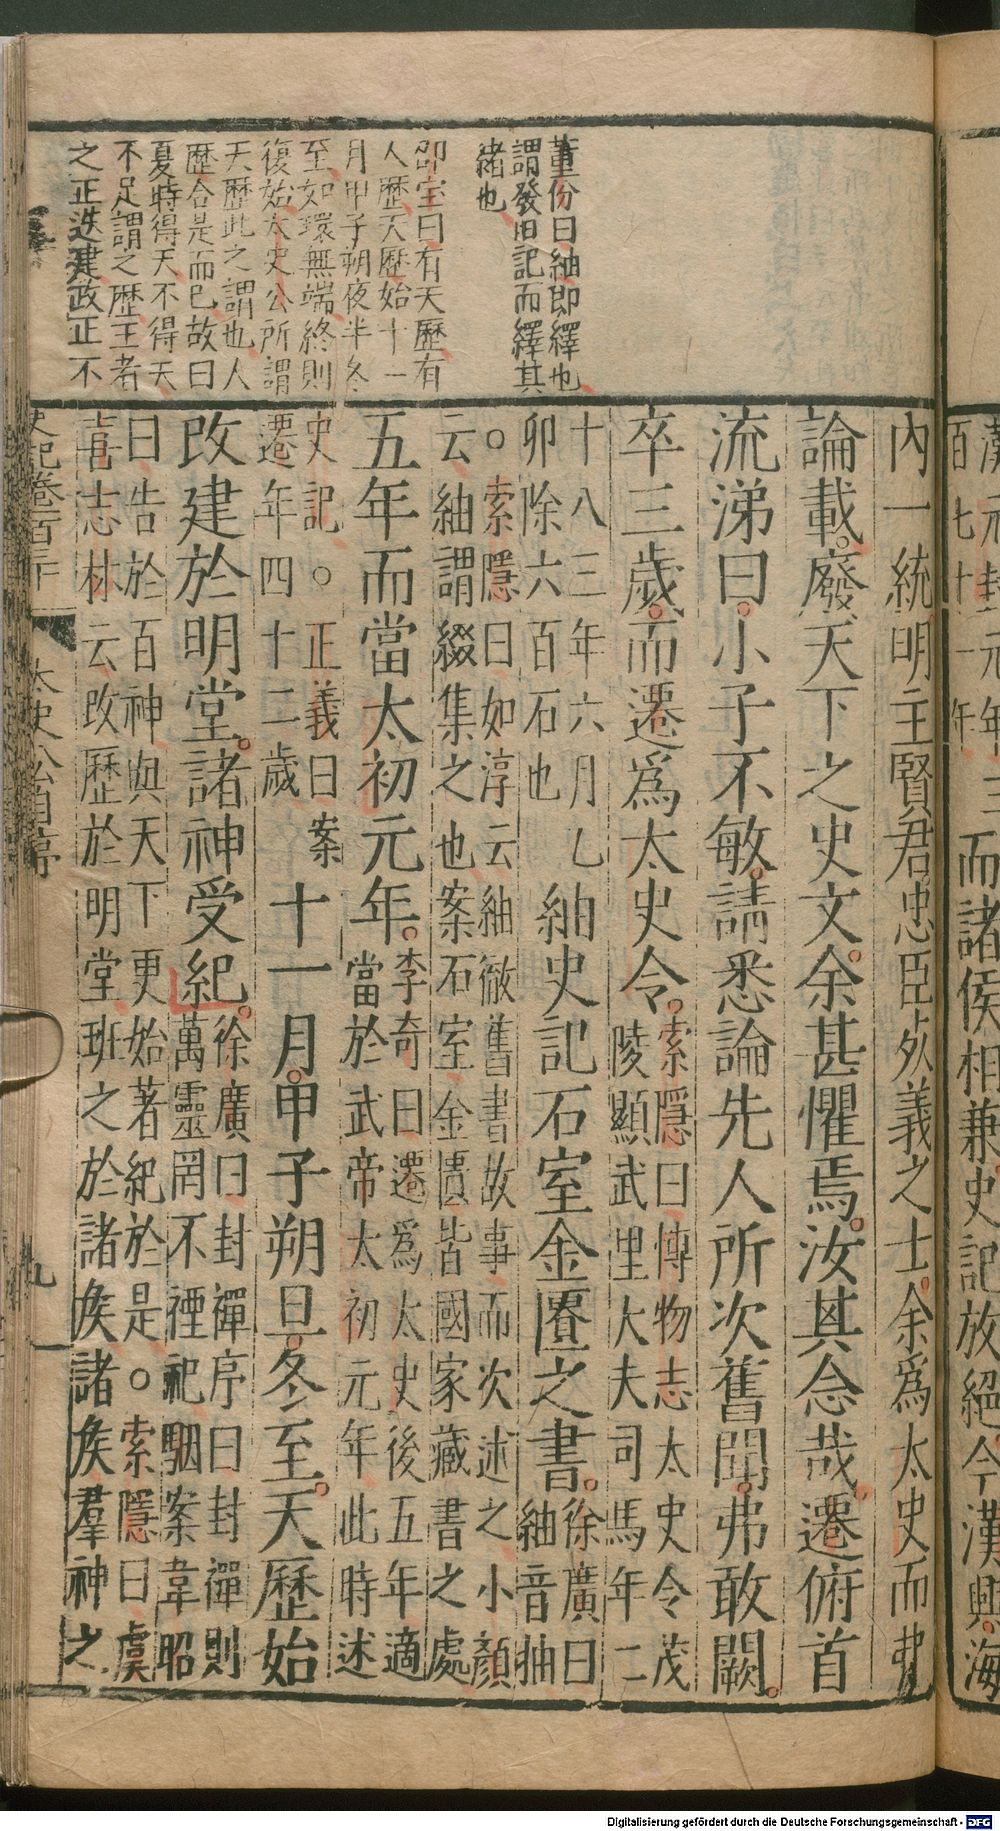 漢元封元年三
百七十一年
而諸侯相兼史記放絕今漢興海
董份曰紬即繹也
謂發旧記而繹其
緒也
邵宝曰有天歷有
人歷天歷始十一
月甲子朔夜半冬
至如環無端終則
復始太史公所謂
天歷此之謂也人
歷合是而已故曰
夏時得天不得天
不足謂之歷王者
之正迭建政正不
內一統明主賢君忠臣死義之士余爲太史而弗
論載廢天下之史文余甚懼焉汝其念哉遷俯首
流涕曰小子不敏請悉論先人所次舊聞弗敢闕
卒三歲而遷爲太史令
索隱曰博物志太史令茂
陵顯武里大夫司馬年二
十八三年六月乙
卯除六百石也
紬史記石室金匱之書
徐廣曰
紬音抽
○索隱曰如淳云紬徹舊書故事而次述之小顏
云紬謂綴集之也案石室金匱皆國家藏書之處
五年而當太初元年
李奇曰遷爲太史後五年適
當於武帝太初元年此時述
史記○正義曰案
遷年四十二歲
十一月甲子朔旦冬至天歷始
改建於明堂諸神受紀
徐廣曰封禪序曰封禪則
萬靈罔不禋祀駰案韋昭
曰告於百神與天下更始著紀於是○索隱曰虞
喜志林云改歷於明堂班之於諸侯諸侯羣神之
史記卷百三十 太史公自序 九
Digitalisierung gefördert durch die Deutsche Forschungsgemeinschaft - DFG